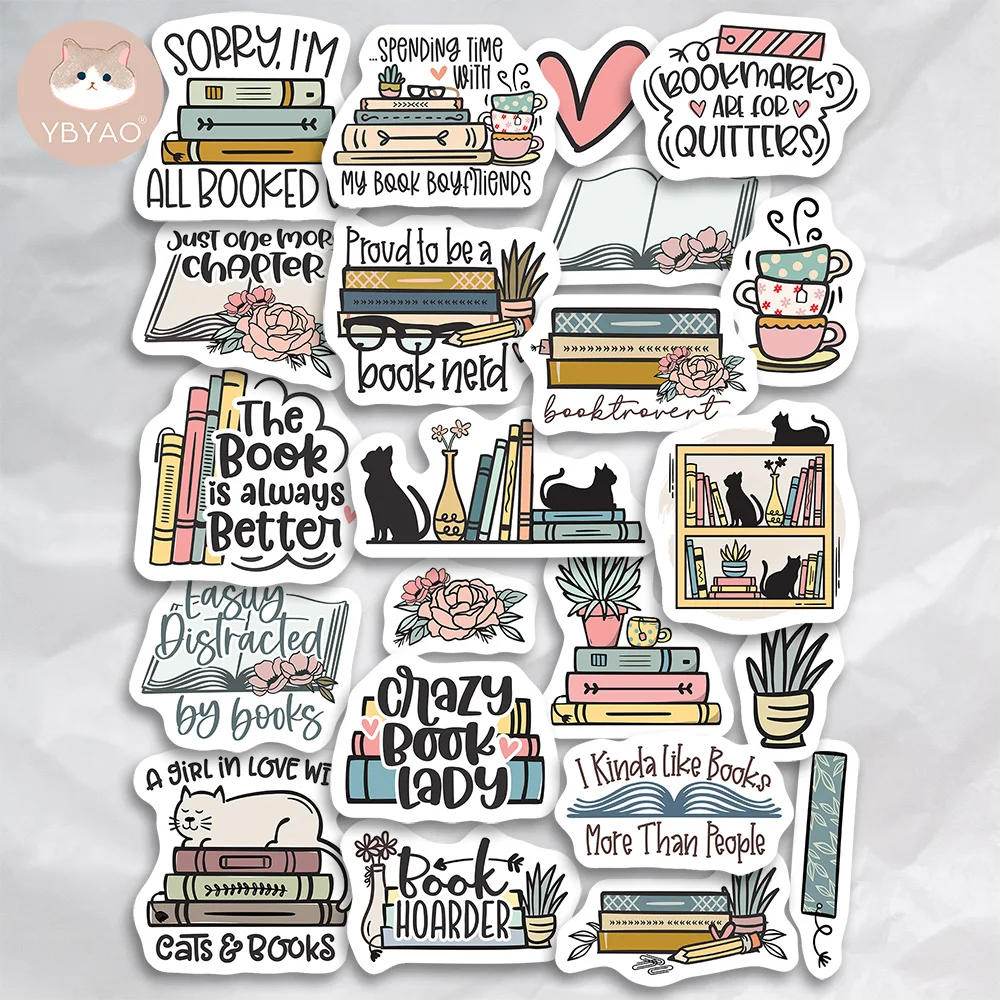 YBYAO®
SORRY, I'M
ALL BOOKED
...SPENDING TIME
WITH
MY BOOK BOYFRIENDS
BOOKMARKS
ARE FOR
QUITTERS
JUST ONE MOR
CHAPTER
Proud to be a
book nerd
booktrovert
The
Book
is always
Better
Easily
Distracted
by books
CRAZY
BOOK
LADY
I Kinda Like Books
More Than People
A GIRL IN LOVE WI
CATS & BOOKS
Book
HOARDER